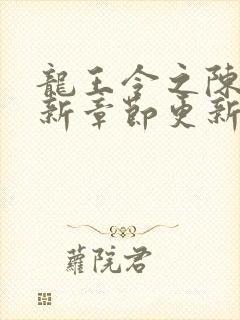 龍王令之陳
新章節更新
蘿院君